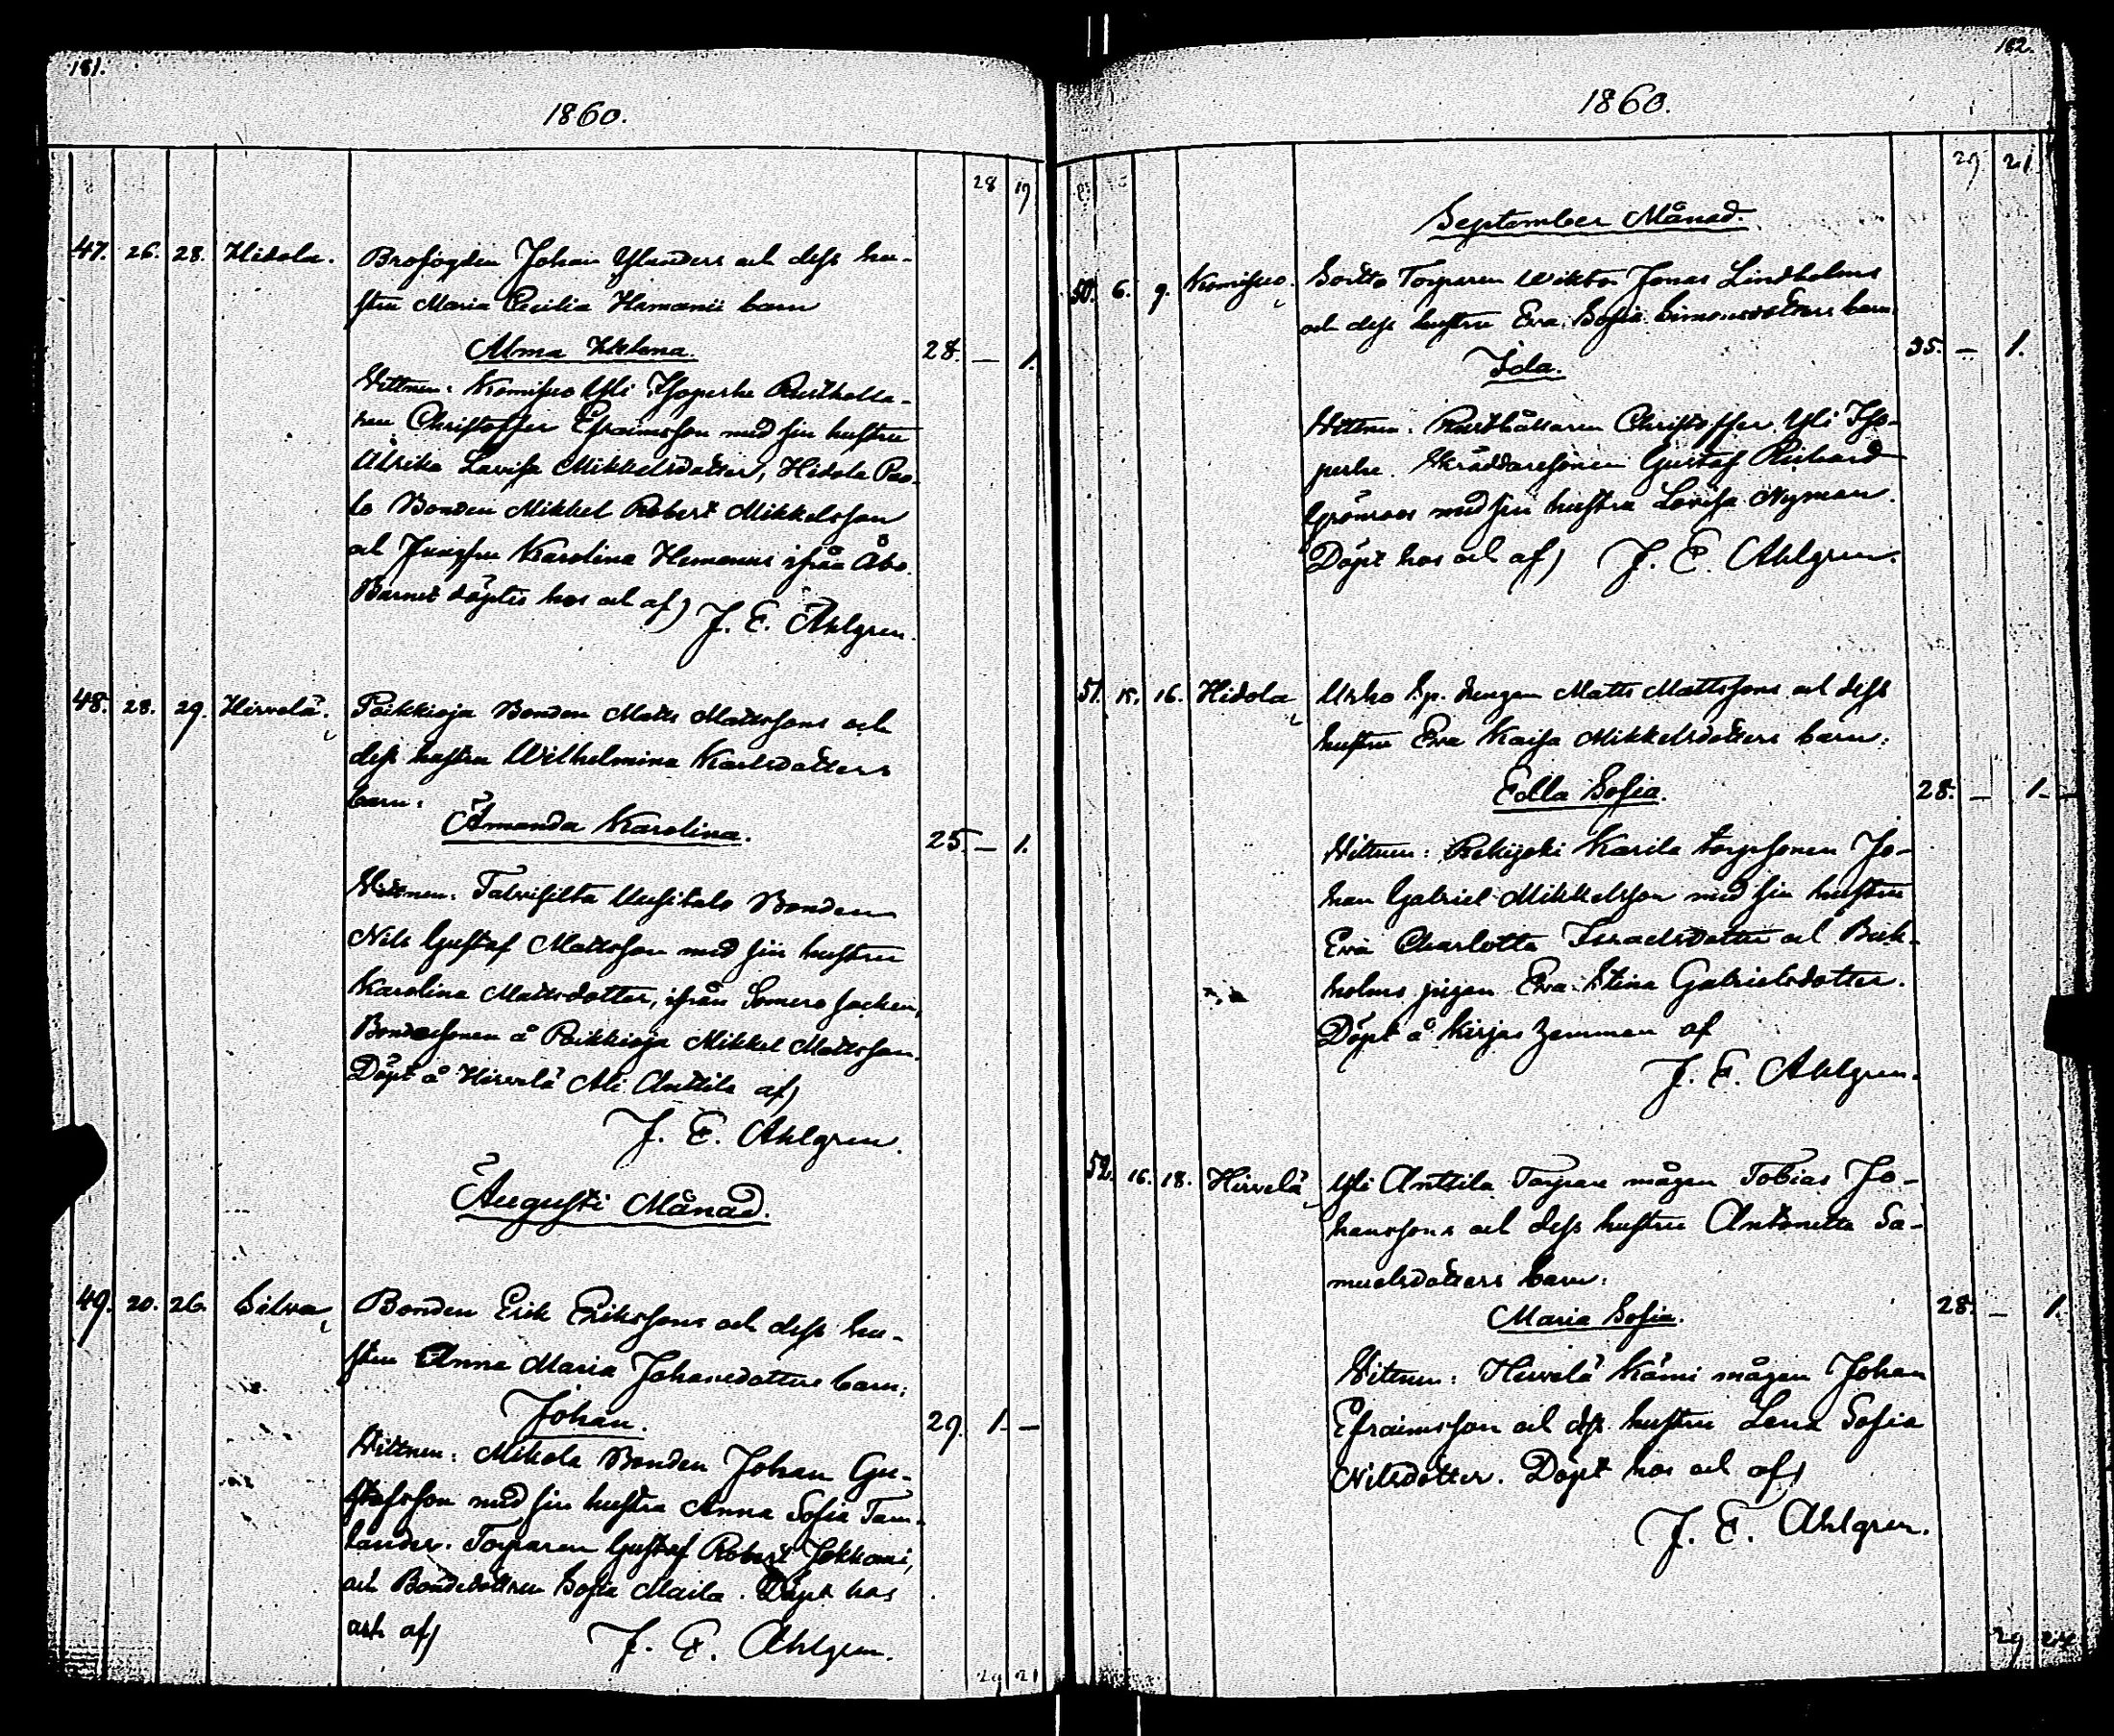 181.
1860.
28 19
47. 26. 28. Hidola. Brofogden Johan Ylanders och dess hu-
stru Maria Cecilia Hemanii barn
Alma Helena. 28. — 1.
Vittnen: Komisuo Yli Isoperhe Rusthålla-
ren Christoffer Efraimsson med sin hustru
Ulrika Lovisa Mikkelsdotter, Hidola Paa-
lo Bonden Mikkel Robert Mikkelsson
och Jungfru Karolina Hemanus ifrån Åbo.
Barnet döptes hos och af) J. E. Ahlgren.
48. 28. 29. Hirvelä. Paikkioja Bonden Matts Mattssons och
dess hustru Wilhelmina Karlsdotters
barn:
Amanda Karolina. 25. — 1.
Vittnen: Talvisilta Uusitalo Bonden
Nils Gustaf Mattsson med sin hustru
Karolina Mattsdotter, ifrån Somero socken,
Bondesonen å Paikkioja Mikkel Mattsson.
Döpt å Hirvelä Ali Anttila af)
J. E. Ahlgren.
Augusti Månad.
49. 20. 26. Salva Bonden Erik Erikssons och dess hu-
stru Anna Maria Johansdotters barn:
Johan. 29. 1. —
Vittnen: Mikola Bonden Johan Gu-
stafsson med sin hustru Anna Sofia Tam-
lander. Torparen Gustaf Robert Jokkomi,
och Bondedottren Sofia Maila. Döpt hos
och af) J. E. Ahlgren.
29 21
182.
1860.
29 21
September Månad.
50. 6. 9. Komisuo. Torparen Wiktor Jonas Lindholms
och dess hustru Eva Sofia Simonsdotters barn
Ida. 35. — 1.
Vittnen: Rusthållaren Christoffer Yli Iso-
perhe. Skräddaresonen Gustaf Richard
Grönroos med sin hustru Lovisa Nyman.
Döpt hos och af) J. E. Ahlgren.
51. 15. 16. Hidola Uhko Sp. drengen Matts Mattssons och dess
hustru Eva Kaisa Mikkelsdotters barn:
Edla Sofia. 28. — 1.
Vittnen: Rekijoki Karila torpsonen Jo-
han Gabriel Mikkelsson med sin hustru
Eva Charlotta Israelsdotter och Björk-
holms pigan Eva Stina Gabrielsdotter.
Döpt å Kirjas af
J. E. Ahlgren.
52. 16. 18. Hirvelä Yli Anttila Torpare mågen Tobias Jo-
hanssons och dess hustru Antonetta Sa-
muelsdotters barn:
Maria Sofia. 28. — 1.
Vittnen: Hirvelä Kämi mågen Johan
Efraimsson och dess hustru Lena Sofia
Nilsdotter. Döpt hos och af)
J. E. Ahlgren.
29 24